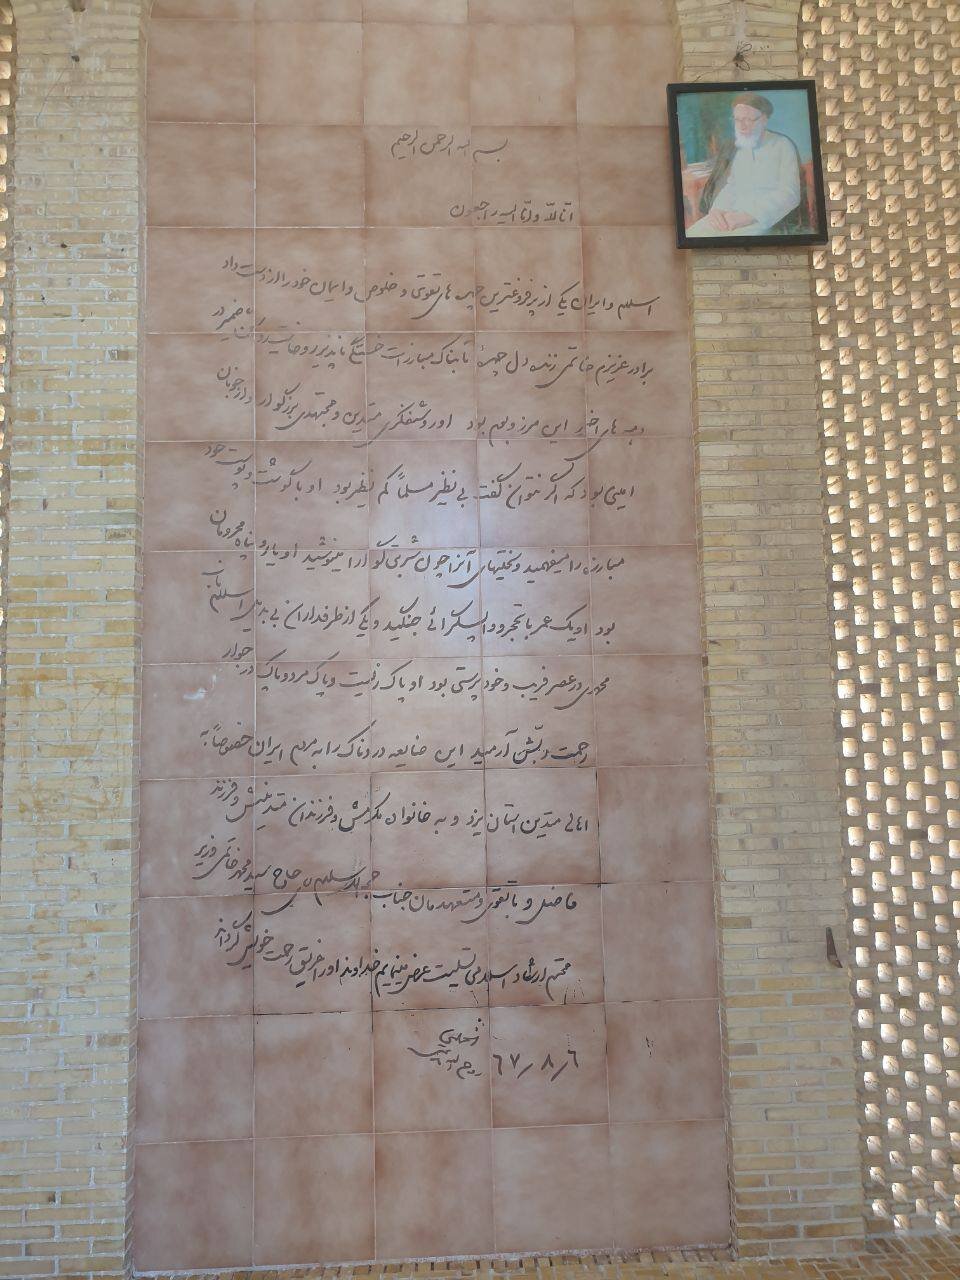 بسم الله الرحمن الرحیم
انا لله و انا الیه راجعون
اسلام و ایران یکی از پرفروغترین چهره های تقوی و خلوص و ایمان خود را از دست داد
برادر عزیزم خاتمی زنده دل چهرهٔ تابناک مبارزات خستگی ناپذیر روحانیت و روشن ضمیر در
دهه های اخیر این مرز و بوم بود او روشنفکری متدین و مجتهدی بزرگوار و از خوبان
امینی بود که اگر نتوان گفت بی نظیر مسلماً کم نظیر بود او با گوشت و پوست خود
مبارزه را میفهمید و سختیهای آنرا چون شربتی گوارا مینوشید او یار و پناه محرومان
بود او یک عمر با تحجر و واپسگرائی جنگید و یکی از طرفداران بی بدیل اسلام ناب
محمدی در عصر فریب و خودپرستی بود او پاک زیست و پاک مرد و پاک در جوار
رحمت ربّش آرمید این ضایعه دردناک را به مردم ایران خصوصاً به
اهالی متدین استان یزد و به خانواده مکرمش و فرزندان متدینش و فرزند
فاضل و با تقوی و متعهدمان جناب حجةالاسلام حاج سید محمد خاتمی وزیر
محترم ارشاد اسلامی تسلیت عرض مینمایم خداوند او را غریق رحمت خویش گرداند
٦٧/٨/٦
روح الله الموسوی الخمینی